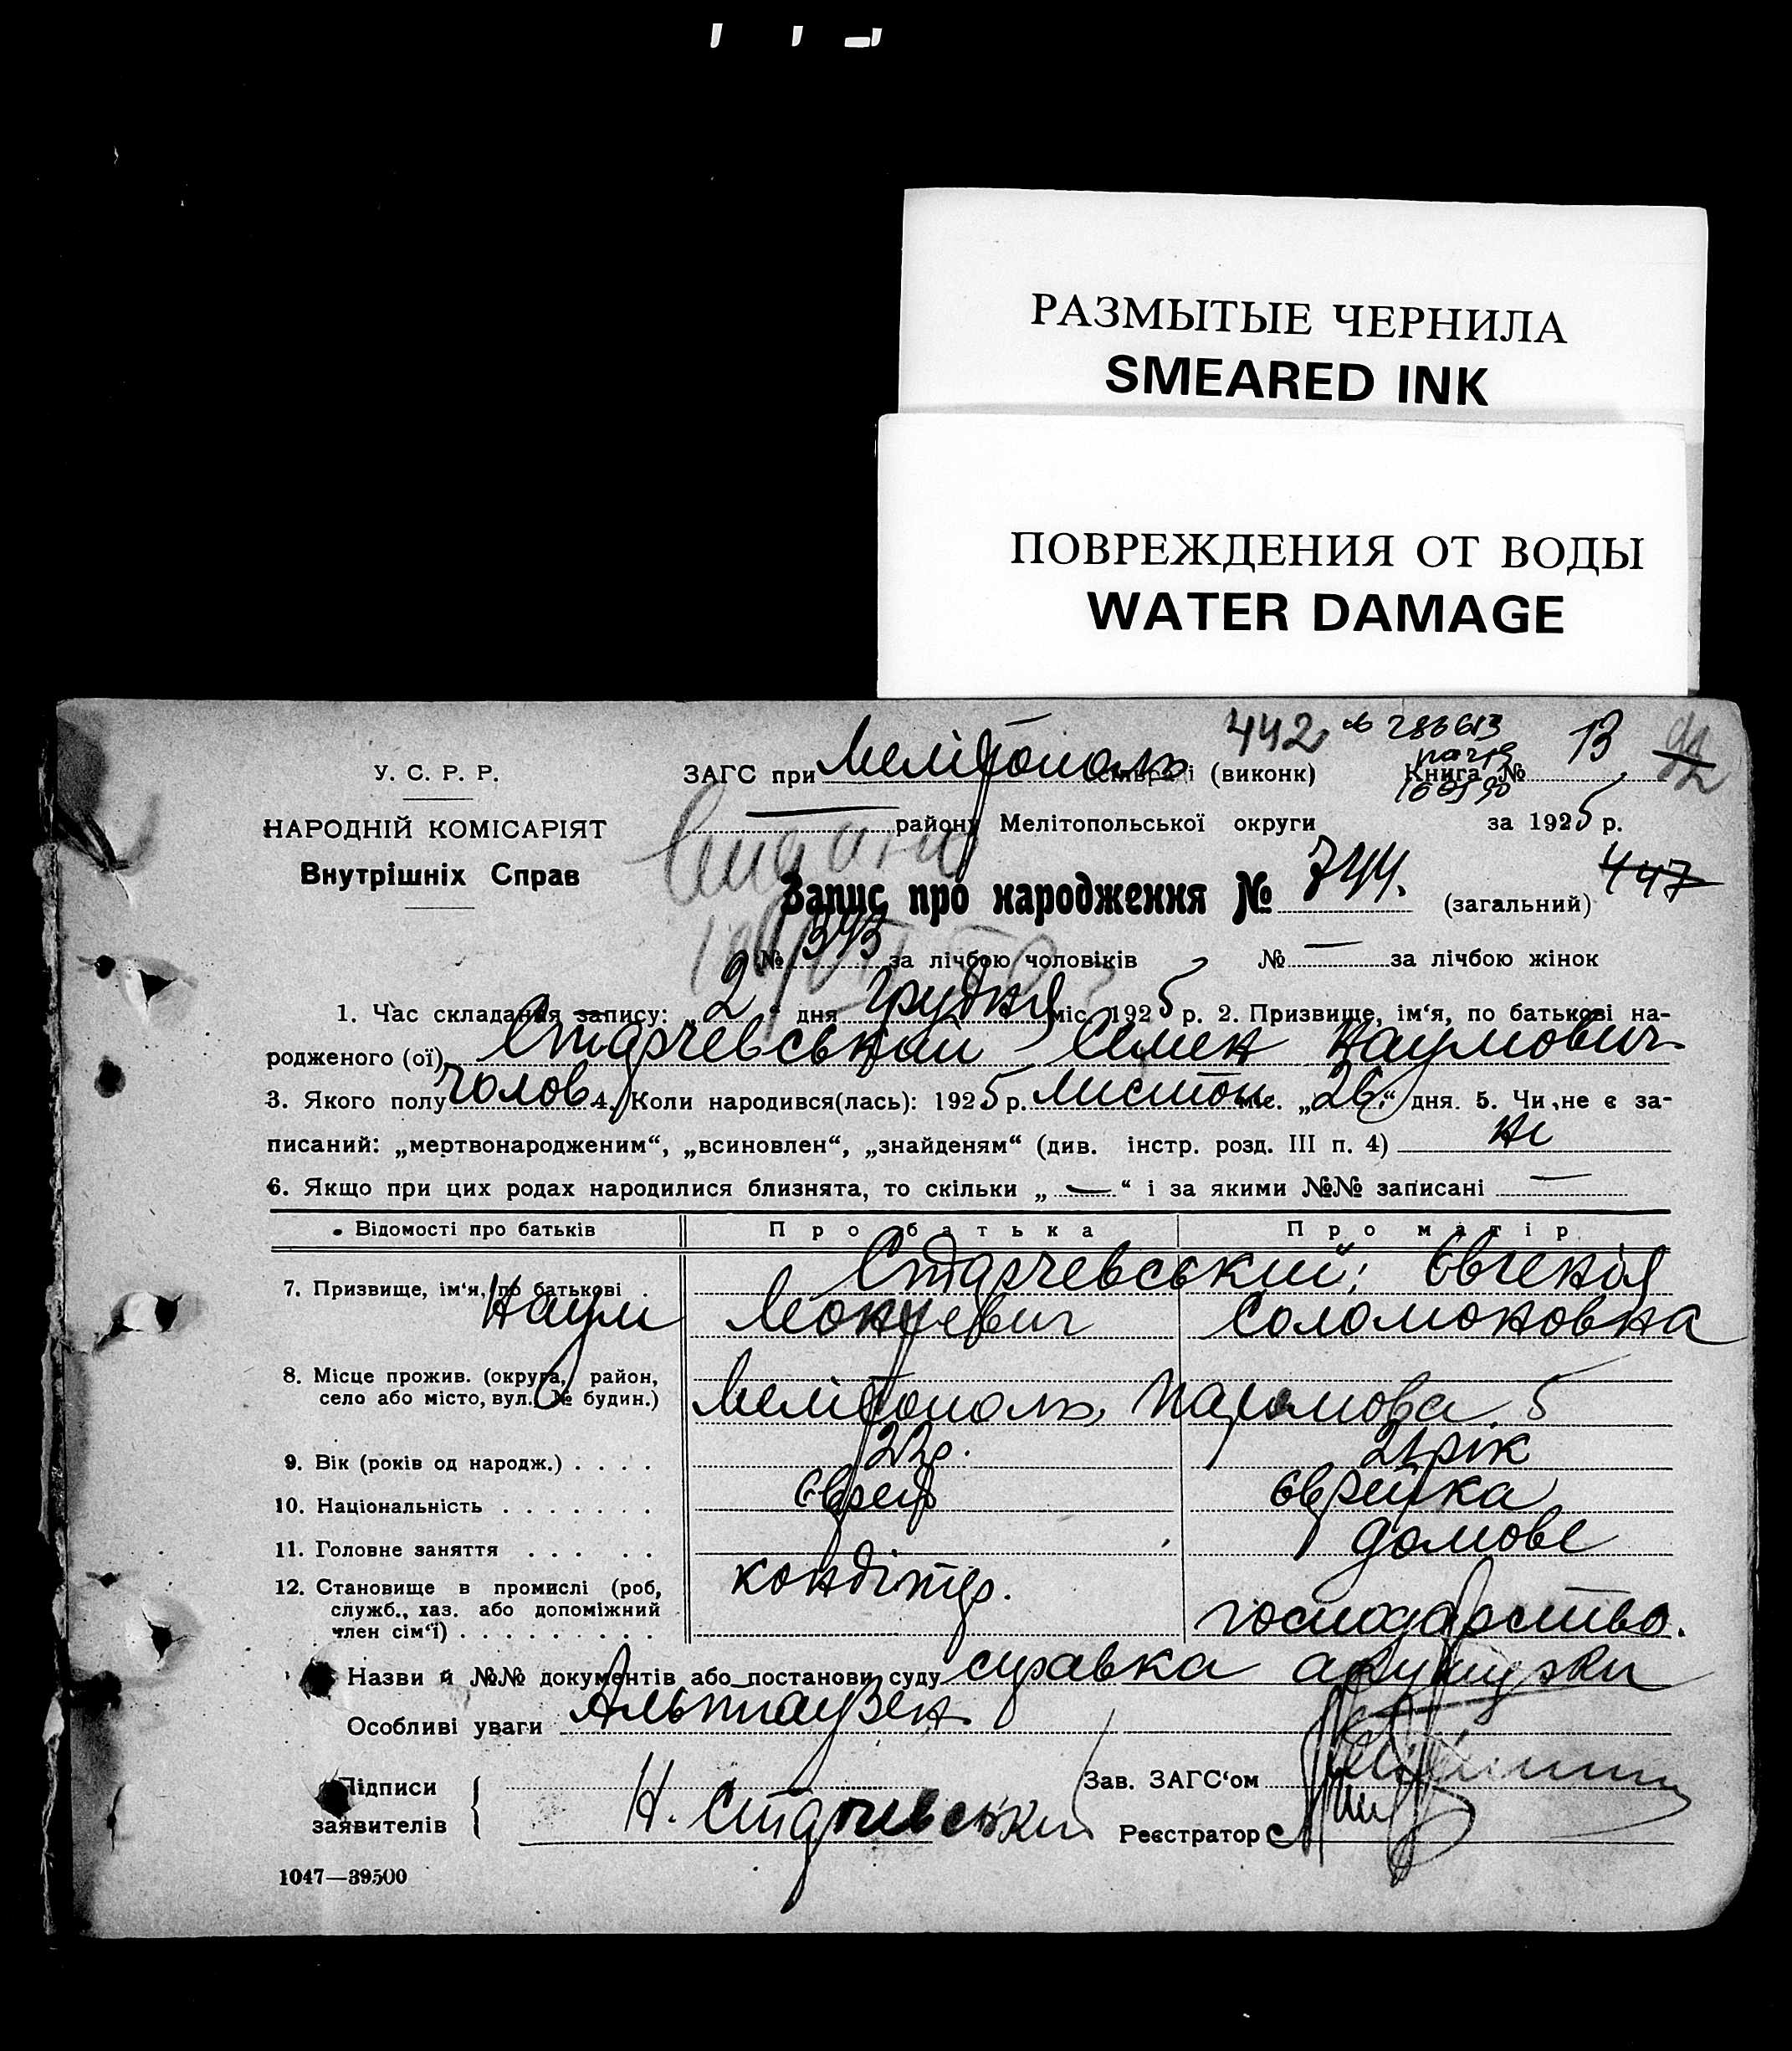 РАЗМЫТЫЕ ЧЕРНИЛА
SMEARED INK
ПОВРЕЖДЕНИЯ ОТ ВОДЫ
WATER DAMAGE
442 286613 13
У. С. Р. Р. ЗАГС при Мелітополь сільраді (виконк) Книга №
НАРОДНІЙ КОМІСАРІЯТ району Мелітопольської округи за 1925 р.
Внутрішніх Справ
Запис про народження № 744. (загальний) 447
№ 393 за лічбою чоловіків № — за лічбою жінок
1. Час складання запису: „2“ дня Грудня міс. 1925 р. 2. Призвище, ім‘я, по батькові на-
родженого (ої) Старчевський Семен Наумович
3. Якого полу чолов. 4. Коли народився(лась): 1925 р. Листоп. міс. „26“ дня. 5. Чи не є за-
писаний: „мертвонародженим“, „всиновлен“, „знайденям“ (див. інстр. розд. III п. 4) не
6. Якщо при цих родах народилися близнята, то скільки „ — “ і за якими №№ записані —
Відомості про батьків Про батька Про матір
7. Призвище, ім‘я, по батькові Старчевський; Євгенія
Наум Соломоновна
8. Місце прожив. (округа, район,
село або місто, вул. № будин.) Мелітополь, 5
9. Вік (років од народж.) . . . . 22 р. 21 рік
10. Національність . . . . . . . Єврей Єврейка
11. Головне заняття . . . . . домове
12. Становище в промислі (роб, кондітер.
служб., хаз. або допоміжний господарство.
член сім‘ї) . . . . . . . . .
Назви й №№ документів або постанови суду справка акушерки
Альтаузен
Особливі уваги
Підписи Зав. ЗАГС‘ом
заявителів Н. Старчевський Реєстратор
1047—39500